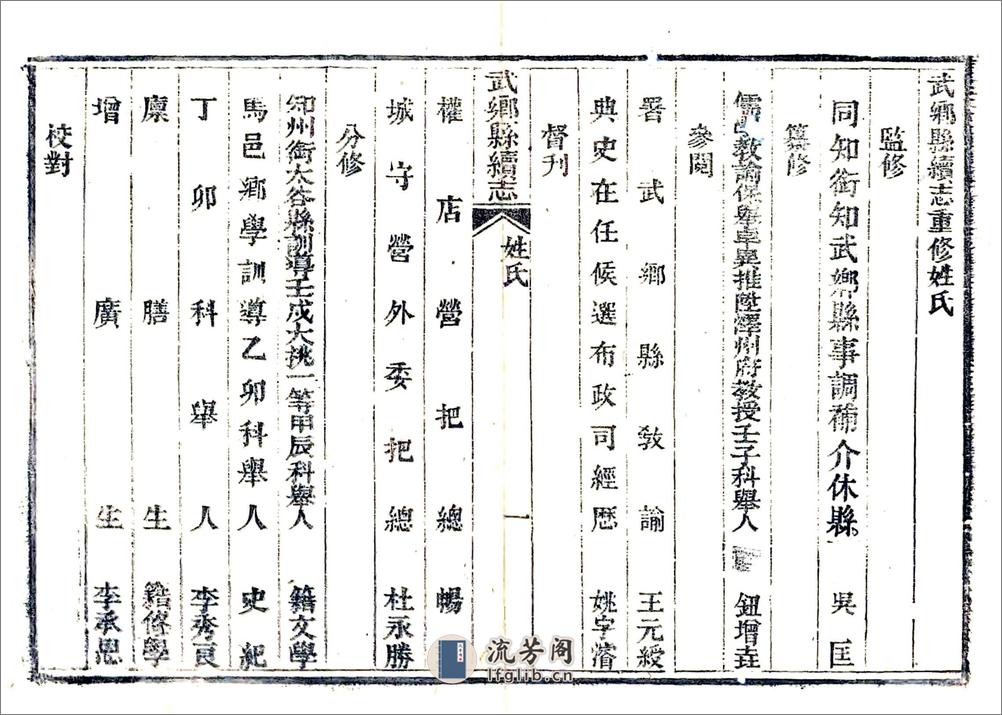 武鄉縣續志重修姓氏
監修
同知銜知武鄉縣事調補介休縣 吳匡
纂修
儒學教諭保舉卓異推陞澤州府教授壬子科舉人 鈕增垚
參閱
署武鄉縣教諭 王元綬
典史在任候選布政司經歷 姚字濬
督刊
武鄉縣續志 姓氏 一
權店營把總 暢
城守營外委把總 杜永勝
分修
知州銜太谷縣訓導壬戌大挑一等甲辰科舉人 籍文學
馬邑鄉學訓導乙卯科舉人 史紀
丁卯科舉人 李秀良
廩膳生 籍修學
增廣生 李承恩
校對
流芳阁
lfglib.cn